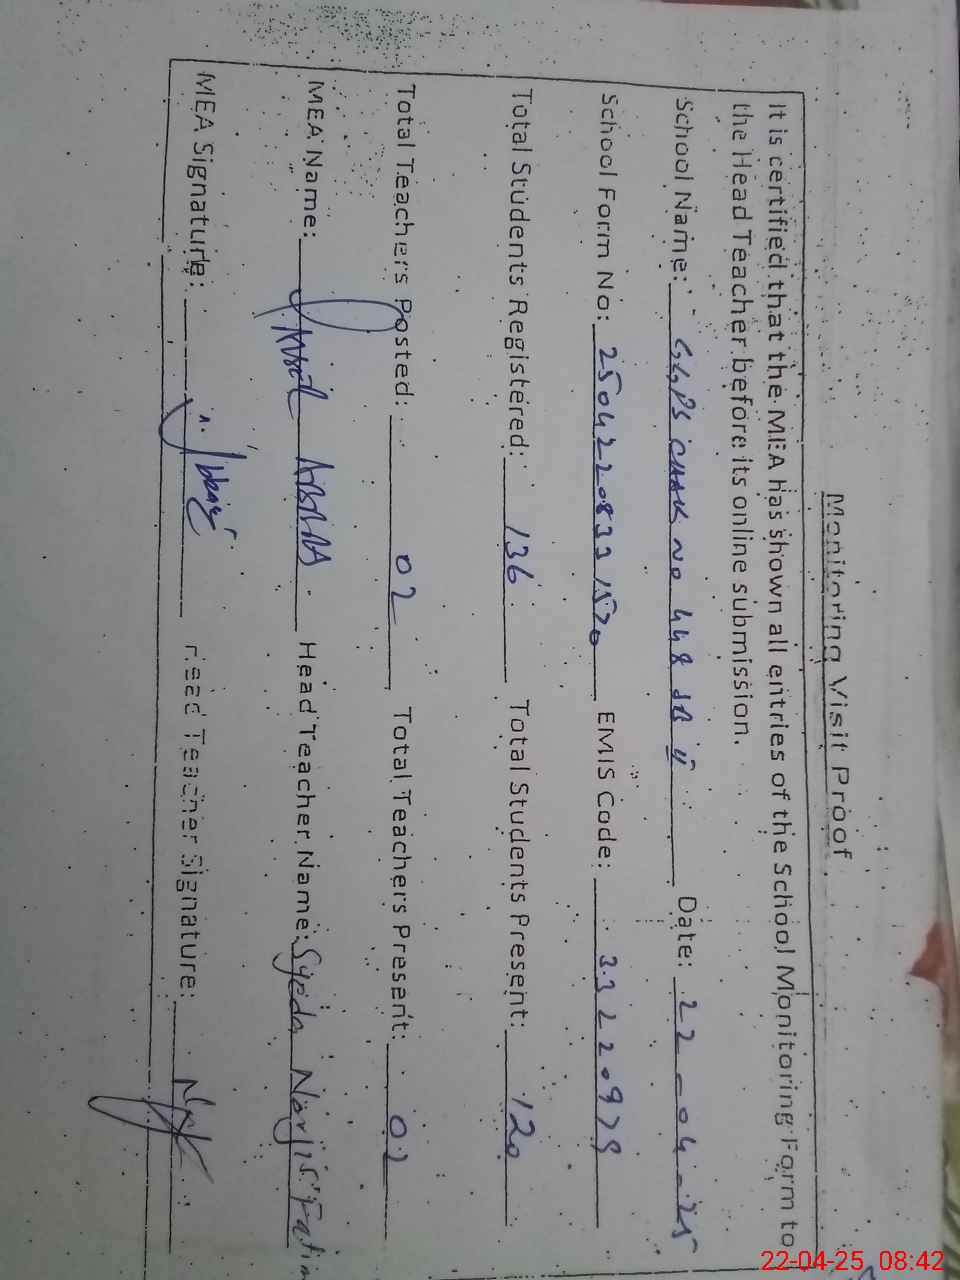 Monitoring Visit Proof
It is certified that the MEA has shown all entries of the School Monitoring Form to
the Head Teacher before its online submission.
School Name: GGPS CHAK NO 448 JB II Date: 22-04-25
School Form No: EMIS Code: 33220979
Total Students Registered: 136 Total Students Present: 120
Total Teachers Posted: 02 Total Teachers Present: 02
MEA Name: ABBAS Head Teacher Name: Syeda Narjis
MEA Signature: Head Teacher Signature:
22-04-25 08:42